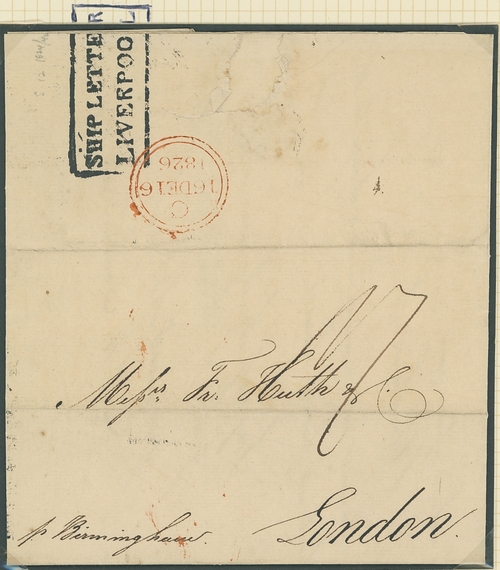 SHIP LETTER
LIVERPOOL
C
16 DE 16
1826
4
17
Messrs. Fr. Huth & Co.
p Birmingham.
London.